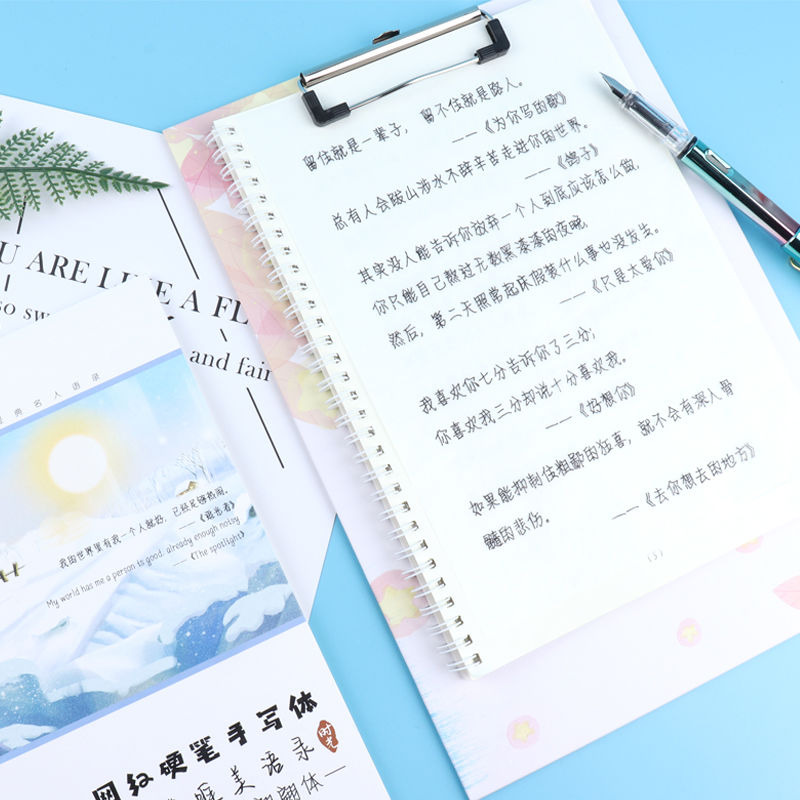 留住就是一辈子，留不住就是路人。
——《为你写的歌》
总有人会跋山涉水不辞辛苦走进你的世界。
——《鸽子》
其实没人能告诉你放弃一个人到底应该怎么做，
你只能自己熬过无数黑漆漆的夜晚，
然后，第二天照常起床假装什么事也没发生。
——《只是太爱你》
我喜欢你七分告诉你了三分；
你喜欢我三分却说十分喜欢我。
——《好想你》
如果能抑制住粗鄙的狂喜，就不会有深入骨
髓的悲伤。
——《去你想去的地方》
(5)
U ARE LIKE A FL
so sw
and fair
经典名人语录
我的世界里有我一个人就好，已经足够热闹。
——《追光者》
My world has me a person is good, already enough noisy
——《The spotlight》
网红硬笔手写体
唯美语录
时光
翩体—